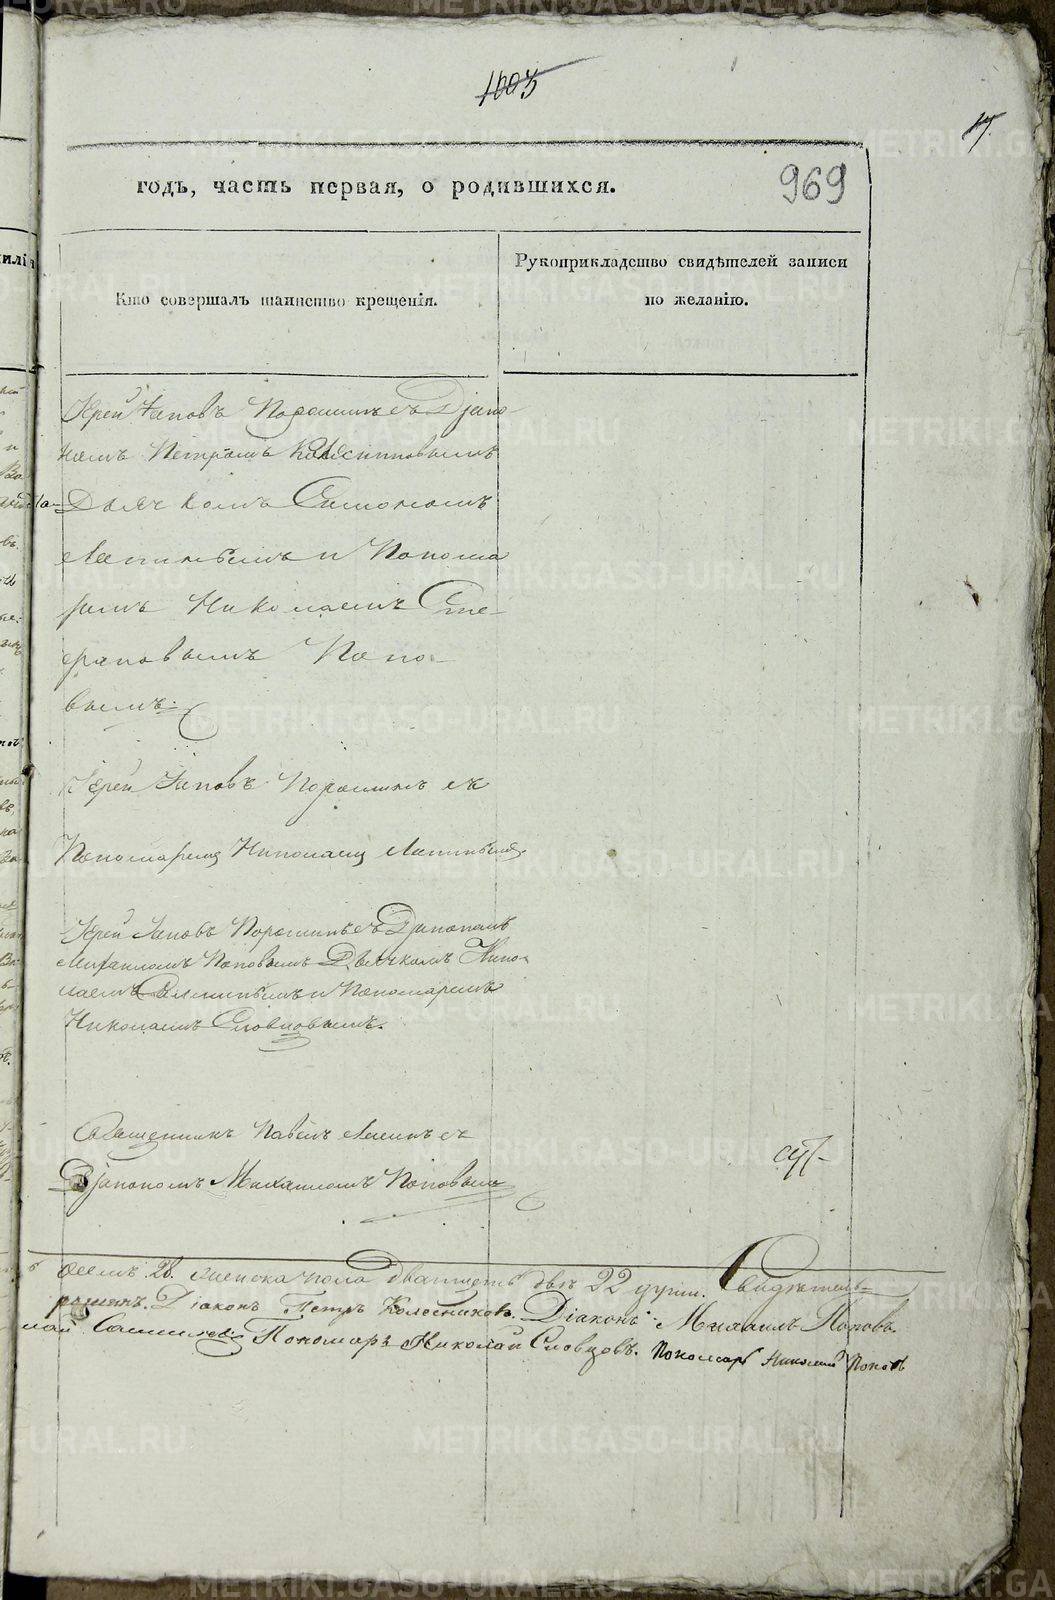 1003
17.
969
годъ, часть первая, о родившихся.
Кто совершалъ таинство крещенія.
Рукоприкладство свидѣтелей записи
по желанію.
Іерей Іаковъ Порошинъ съ Діако-
номъ Петромъ Колесниковымъ
Дьячкомъ Симономъ
и Понома
ремъ Николаемъ Сте-
фановымъ Попо-
вымъ.
Іерей Іаковъ Порошинъ съ
Пономаремъ Николаемъ
Іерей Іаковъ Порошинъ съ Діакономъ
Михаиломъ Поповымъ Дьячкомъ Нико-
лаемъ и Пономаремъ
Николаемъ Словцовымъ.
Священникъ Павелъ съ
Діакономъ Михаиломъ Поповымъ
осемь 28. женска пола двадцать двѣ 22 души. Свидѣтель-
Діаконъ Петръ Колесниковъ. Діаконъ Михаилъ Поповъ.
Пономарь Николай Словцовъ. Пономарь Николай Поповъ
METRIKI.GASO-URAL.RU